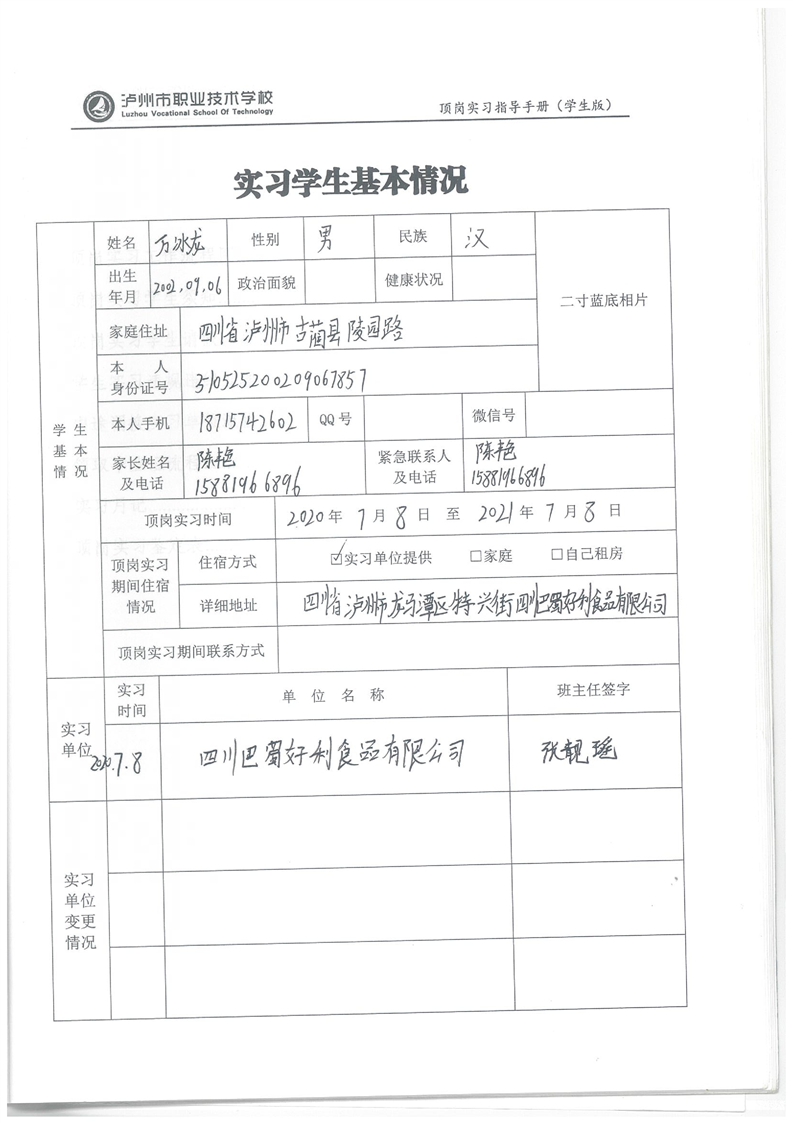 泸州市职业技术学校
Luzhou Vocational School Of Technology
顶岗实习指导手册（学生版）
实习学生基本情况
学生基本情况
姓名 万冰龙 性别 男 民族 汉
二寸蓝底相片
出生年月 2002.09.06 政治面貌 健康状况
家庭住址 四川省泸州市古蔺县陵园路
本人身份证号 510525200209067857
本人手机 18715742602 QQ号 微信号
家长姓名及电话 陈艳 15881966896 紧急联系人及电话 陈艳 15881966896
顶岗实习时间 2020年7月8日至2021年7月8日
顶岗实习期间住宿情况
住宿方式 ☑实习单位提供 □家庭 □自己租房
详细地址 四川省泸州市龙马潭区特兴街四川巴蜀好利食品有限公司
顶岗实习期间联系方式
实习单位
实习时间 单位名称 班主任签字
2020.7.8 四川巴蜀好利食品有限公司 张靓瑶
实习单位变更情况